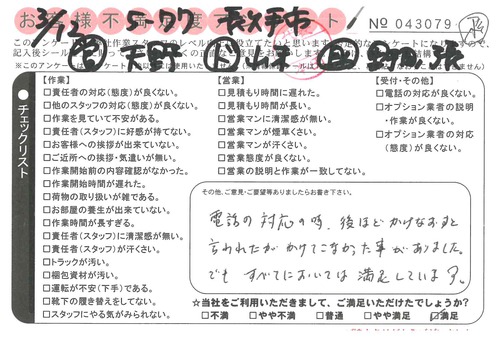 お客様不満足度
ト!
No 043079
3/1
このアンケー
記入後シール
※このアンケー
チェックリスト
【作業】
□責任者の対応(態度)が良くない。
□他のスタッフの対応(態度)が良くない。
□作業を見ていて不安がある。
□責任者(スタッフ)に好感が持てない。
□お客様への挨拶が出来ていない。
□ご近所への挨拶・気遣いが無い。
□作業開始前の内容確認がなかった。
□作業開始時間が遅れた。
□荷物の取り扱いが雑である。
□お部屋の養生が出来ていない。
□作業時間が長すぎる。
□責任者(スタッフ)に清潔感が無い。
□責任者(スタッフ)が汗くさい。
□トラックが汚い。
□梱包資材が汚い。
□運転が不安(下手)である。
□靴下の履き替えをしてない。
□スタッフにやる気がみられない。
【営業】
□見積もり時間に遅れた。
□見積もり時間が長い。
□営業マンに清潔感が無い。
□営業マンが煙草くさい。
□営業マンが汗くさい。
□営業態度が良くない。
□営業の説明と作業が一致してない。
【受付・その他】
□電話の対応が良くない。
□オプション業者の説明
・作業が良くない。
□オプション業者の対応
(態度)が良くない。
その他、ご意見・ご要望等ありましたらお書き下さい。
電話の対応の時、後ほどかけなおすと
言われたがかけてこなかった事がありました。
でもすべてにおいては満足しています。
☆当社をご利用いただきまして、ご満足いただけたでしょうか?
□不満 □やや不満 □普通 □やや満足 ☑満足